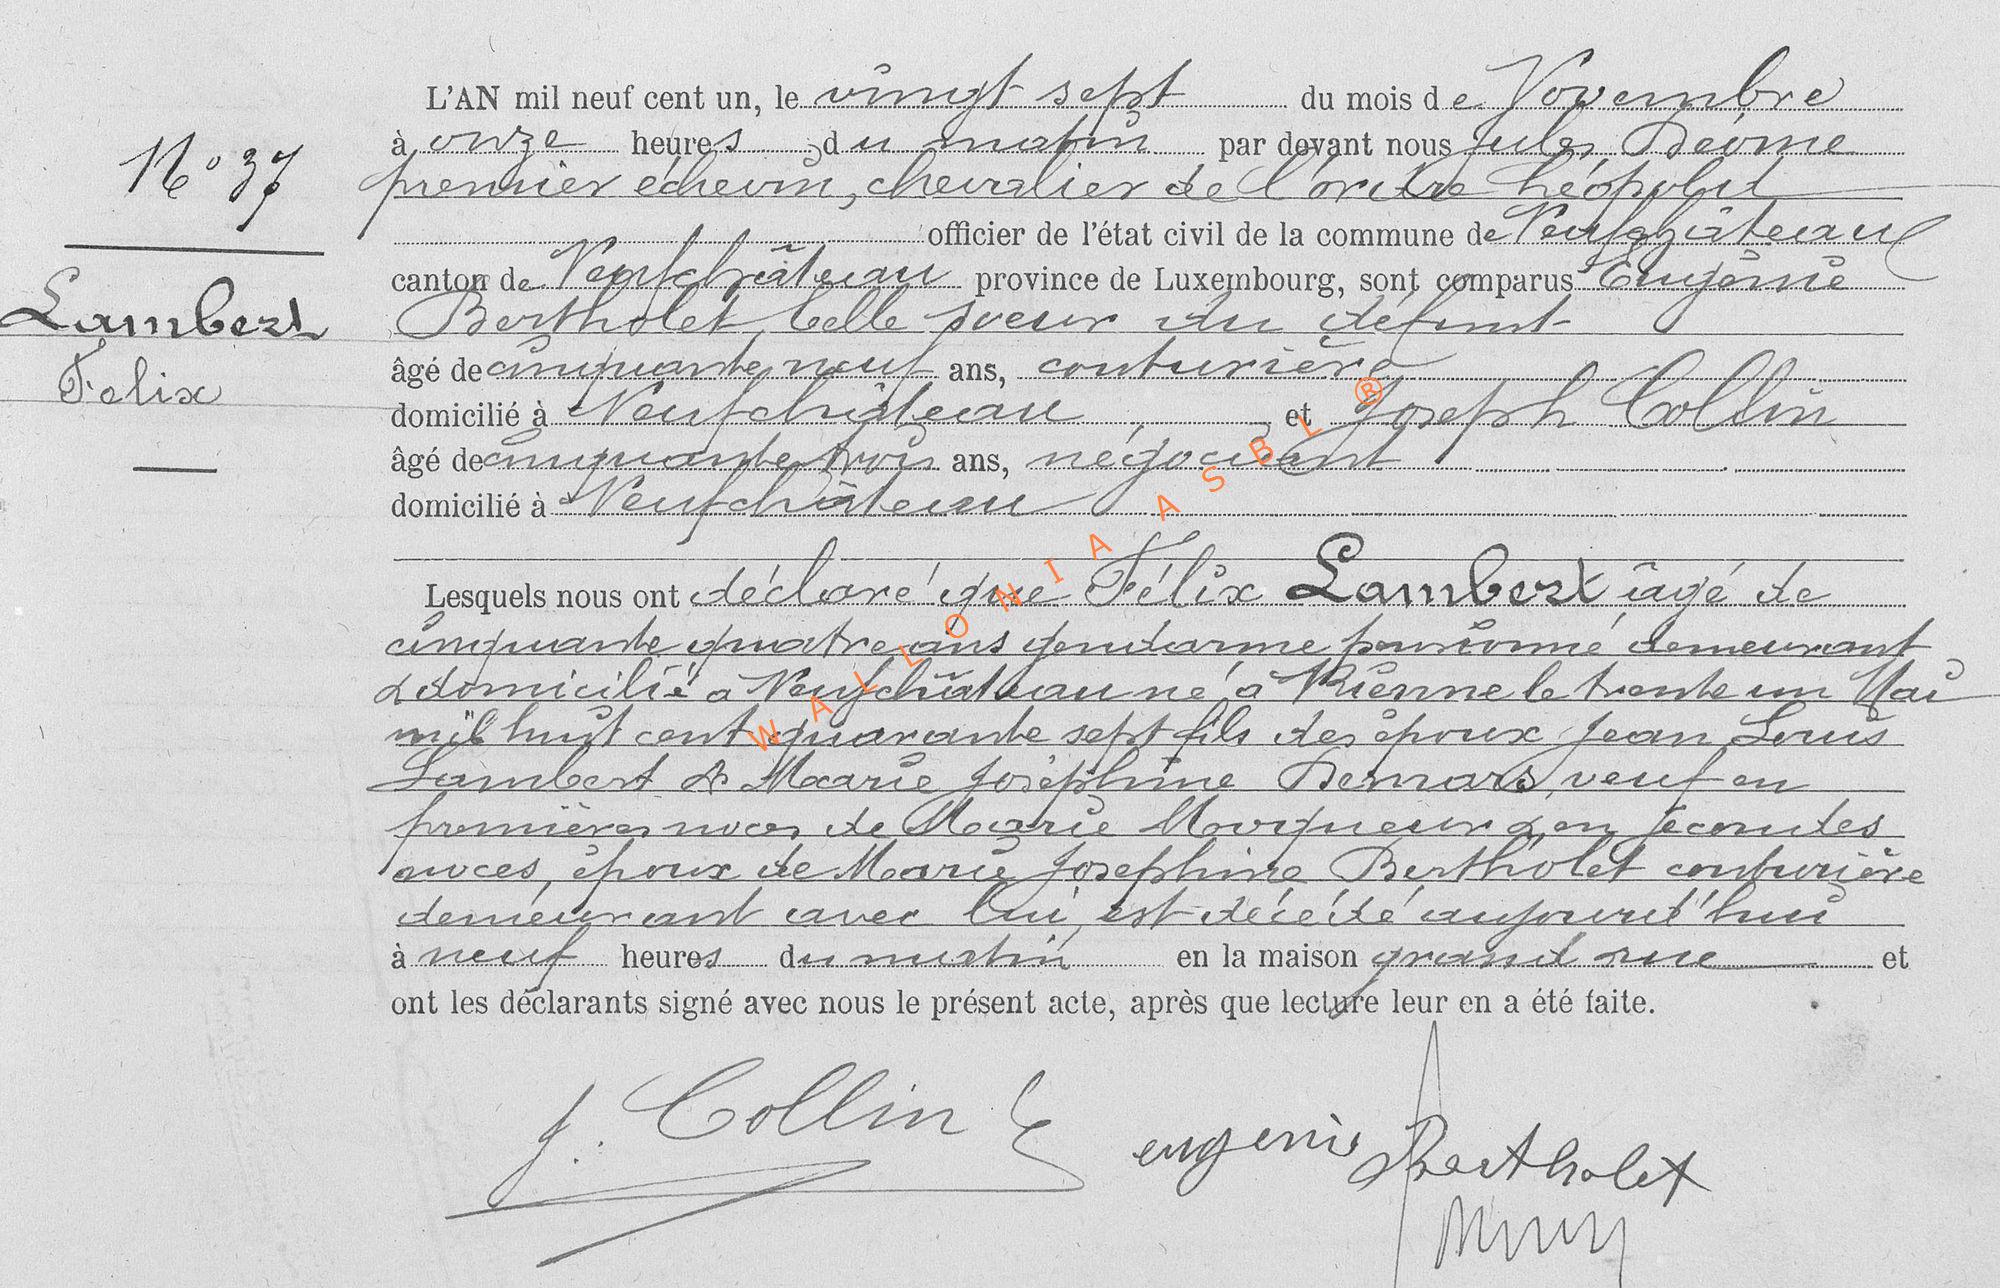 L'AN mil neuf cent un, le vingt sept du mois de Novembre
à onze heures du matin par devant nous Jules Déome
premier échevin, chevalier de l'ordre Léopold
officier de l'état civil de la commune de Neufchâteau
canton de Neufchâteau province de Luxembourg, sont comparus Eugénie
Bertholet belle soeur du défunt
âgé de cinquante neuf ans, couturière
domicilié à Neufchâteau et Joseph Collin
âgé de cinquante trois ans, négociant
domicilié à Neufchâteau
Lesquels nous ont déclaré que Félix Lambert âgé de
cinquante quatre ans gendarme pensionné demeurant
& domicilié à Neufchâteau né à Rienne le trente un Mai
mil huit cent quarante sept fils des époux Jean Louis
Lambert & Marie Joséphine Demars, veuf en
premières noces de Marie & en secondes
noces, époux de Marie Josephine Bertholet couturière
demeurant avec lui, est décédé aujourd'hui
à neuf heures du matin en la maison grand rue et
ont les déclarants signé avec nous le présent acte, après que lecture leur en a été faite.
N° 37
Lambert
Felix
J. Collin
eugenie Bertholet
WALLONIA ASBL ®